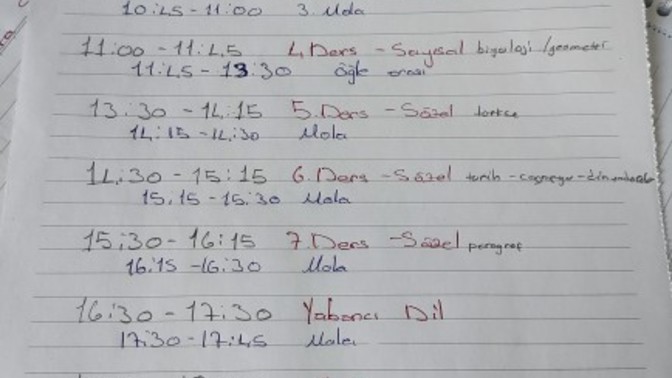 10:45-11:00 3. Mola
11:00-11:45 4. Ders - Sayısal biyoloji/geometri
11:45-13:30 öğle arası
13:30-14:15 5. Ders - Sözel türkçe
14:15-14:30 Mola
14:30-15:15 6. Ders - Sözel tarih-coğrafya-din
15:15-15:30 Mola
15:30-16:15 7. Ders - Sözel paragraf
16:15-16:30 Mola
16:30-17:30 Yabancı Dil
17:30-17:45 Mola